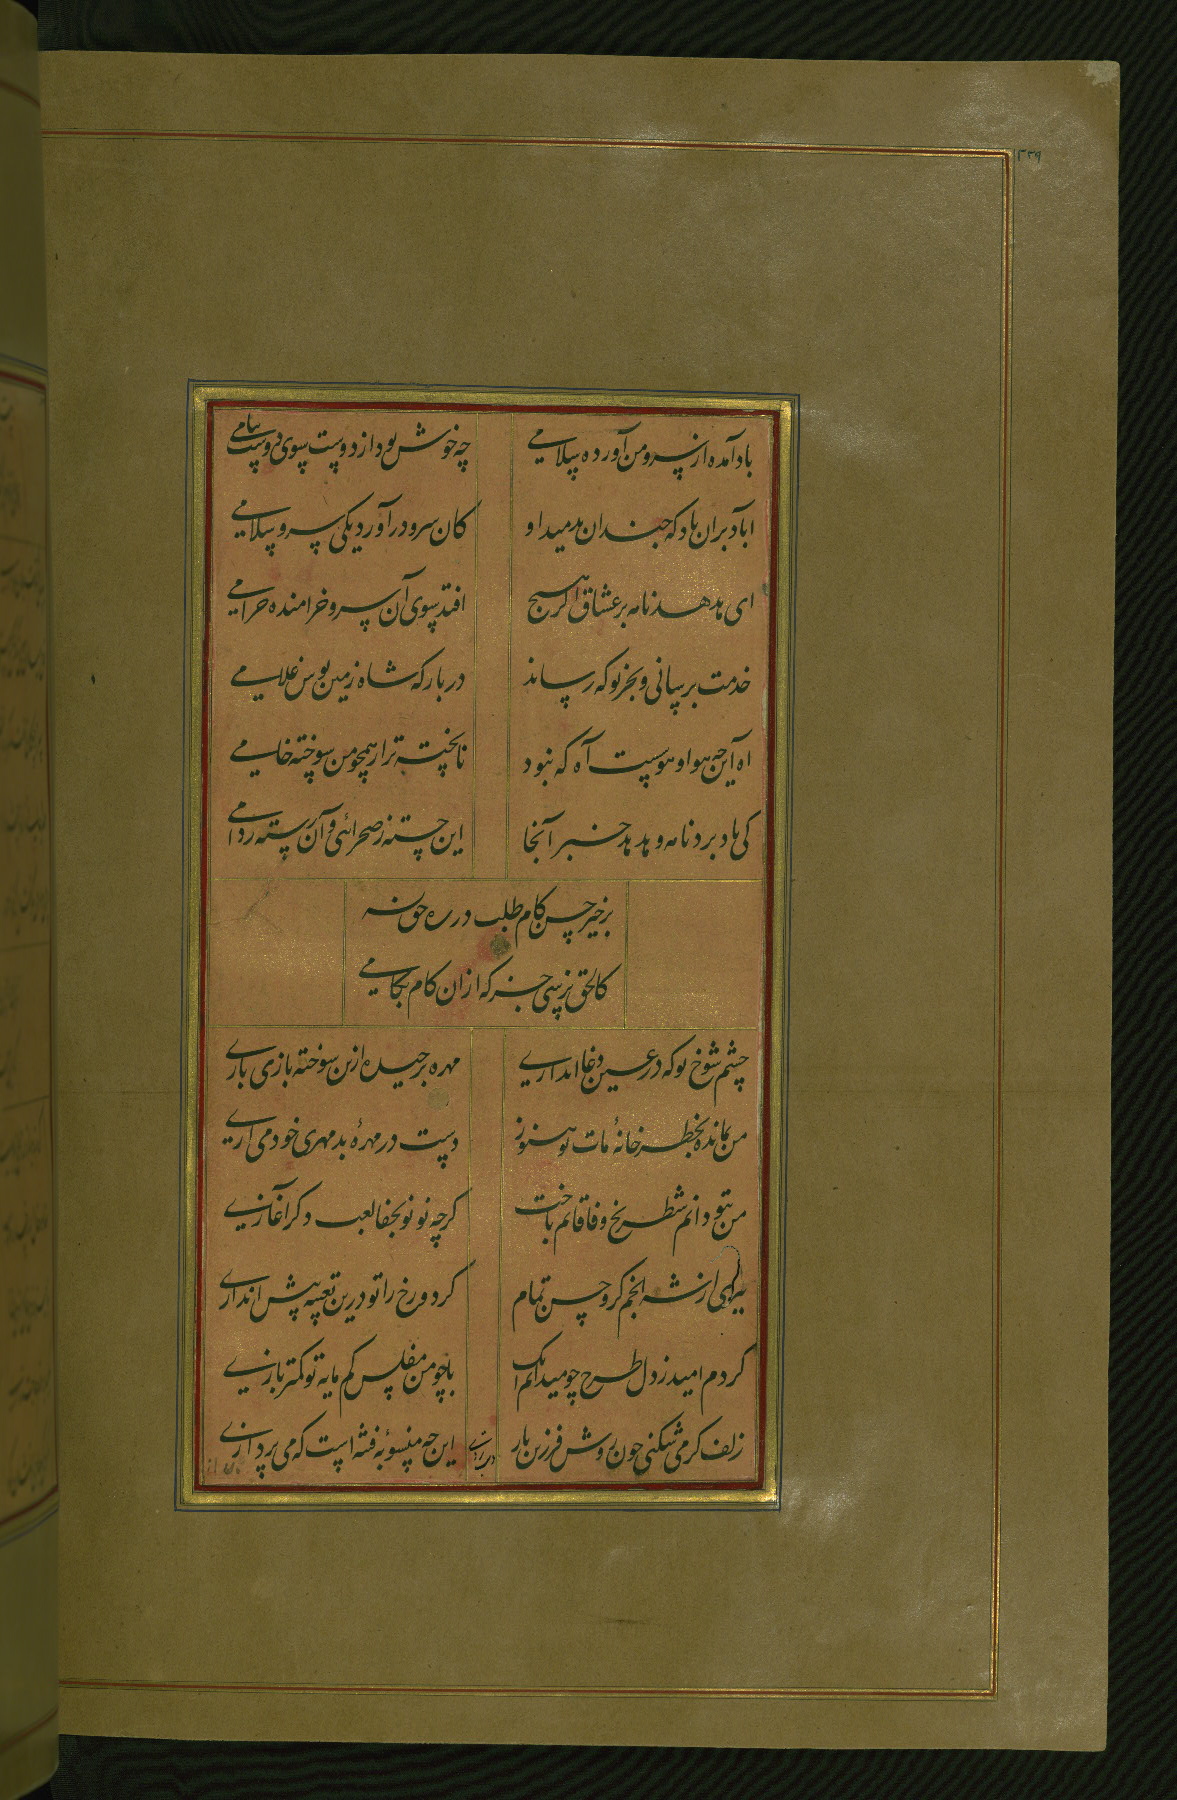 ۱۳۶
باد آمده از سرو من آورده سلامی
چه خوش بود از دوست بسوی دوست پیامی
اباد بران باد که چندان بدمید او
کان سرو درآورد یکی سرو سلامی
ای هدهد نامه بر عشاق اگر هیچ
افتد بسوی آن سرو خرامنده خرامی
خدمت برسانی و بجز تو که رساند
در بارکه شاه زمین بوس غلامی
اه این چه هوا و هوسست آه که نبود
ناپخته ترا همچو من سوخته خامی
کی باد برد نامه و هدهد خبر آنجا
این جسته ز صحرائی و آن رسته ز دامی
برخیز حسن کام طلب در ره حق نه
کالحق نرسی جز که ازان کام بکامی
چشم شوخ تو که در عین دغا اندازی
مهره برچیده ازین سوخته بازی بازی
من بمانده بخطر خانهٔ مات تو هنوز
دست در مهرهٔ بد مهری خود می‌ازی
من بتو دانم شطرنج وفا قائم باخت
کرچه نو نو بجفا لعب دکر آغازی
از شه انجم کرو حسن تمام
کر دو رخ را تو درین تعبیه پیش اندازی
کردم امید ز دل طرح چو میدانم انک
با چو من مفلس کم مایه تو کمتر بازی
زلف کژ می شکنی چون روش فرزین باز
این چه منسوبه فتنه است که می پردازی